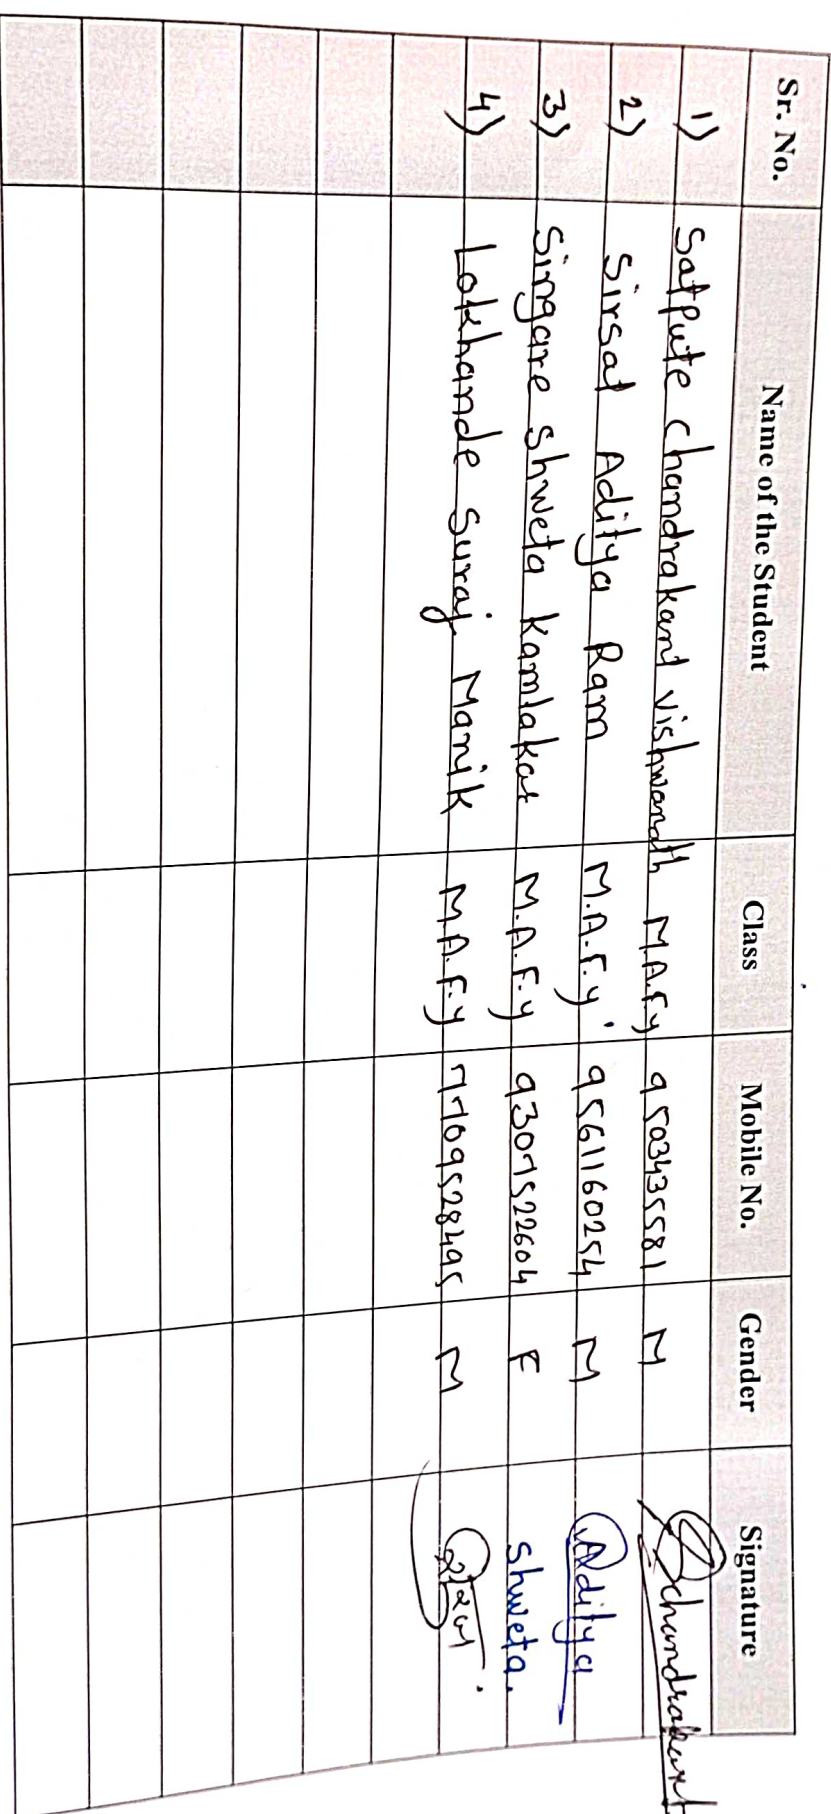 Sr. No. Name of the Student Class Mobile No. Gender Signature
1) Satpute chandrakant vishwanath M.A.F.y 9503435581 M Schandrakant
2) Sirsat Aditya Ram M.A.F.y. 9561160254 M Aditya
3) Singare shweta kamlakar M.A.F.y 9307522604 F shweta.
4) Lokhande Suraj Manik M.A.F.y 7709528495 M